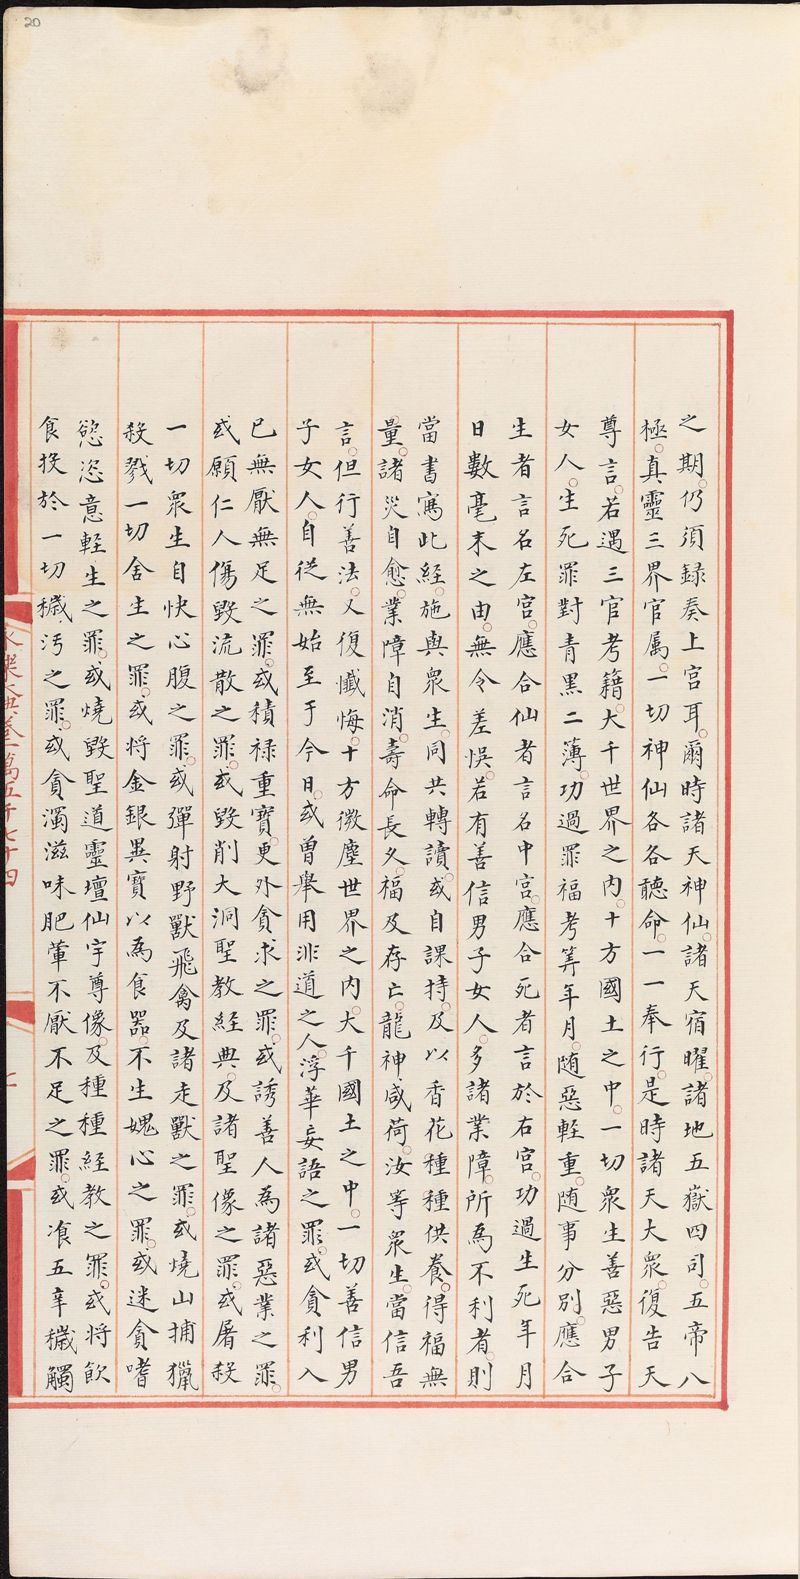 20
之期仍須録奏上宫耳爾時諸天神仙諸天宿曜諸地五嶽四司五帝八
極真靈三界官属一切神仙各各聽命一一奉行是時諸天大衆復告天
尊言若遇三官考籍大千世界之内十方國土之中一切衆生善惡男子
女人生死罪對青黑二薄功過罪福考筭年月随惡輕重随事分別應合
生者言名左宫應合仙者言名中宫應合死者言於右宫功過生死年月
日數毫末之由無令差悞若有善信男子女人多諸業障所爲不利者則
當書寫此經施與衆生同共轉讀或自課持及以香花種種供養得福無
量諸災自愈業障自消壽命長久福及存亡龍神咸荷汝等衆生當信吾
言但行善法又復懺悔十方微塵世界之内大千國土之中一切善信男
子女人自從無始至于今日或曾舉用非道之人浮華妄語之罪或貪利入
已無厭無足之罪或積禄重寶更外貪求之罪或誘善人爲諸惡業之罪
或願仁人傷毀流散之罪或毀削大洞聖教經典及諸聖像之罪或屠殺
一切衆生自快心腹之罪或彈射野獸飛禽及諸走獸之罪或燒山捕獵
殺戮一切含生之罪或将金銀異寶以爲食器不生媿心之罪或迷貪嗜
慾恣意輕生之罪或燒毀聖道靈壇仙宇尊像及種種經教之罪或将飲
食投於一切穢汚之罪或貪濁滋味肥葷不厭不足之罪或飡五辛穢觸
永樂大典卷一萬五千七十四